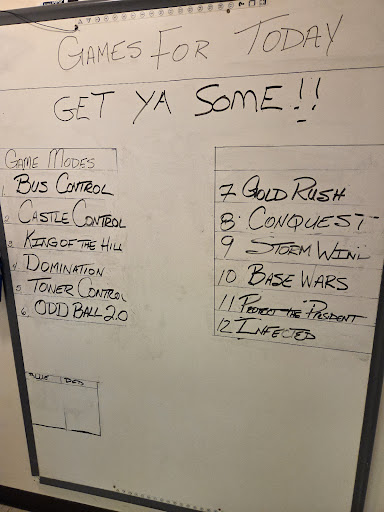 GAMES FOR TODAY
GET YA SOME!!
GAME MODES
1. BUS CONTROL
2. CASTLE CONTROL
3. KING OF THE HILL
4. DOMINATION
5. TONER CONTROL
6. ODD BALL 2.0
7 GOLD RUSH
8 CONQUEST
9 STORM WIND
10 BASE WARS
11 PROTECT THE PRESIDENT
12 INFECTED
BLUE RED